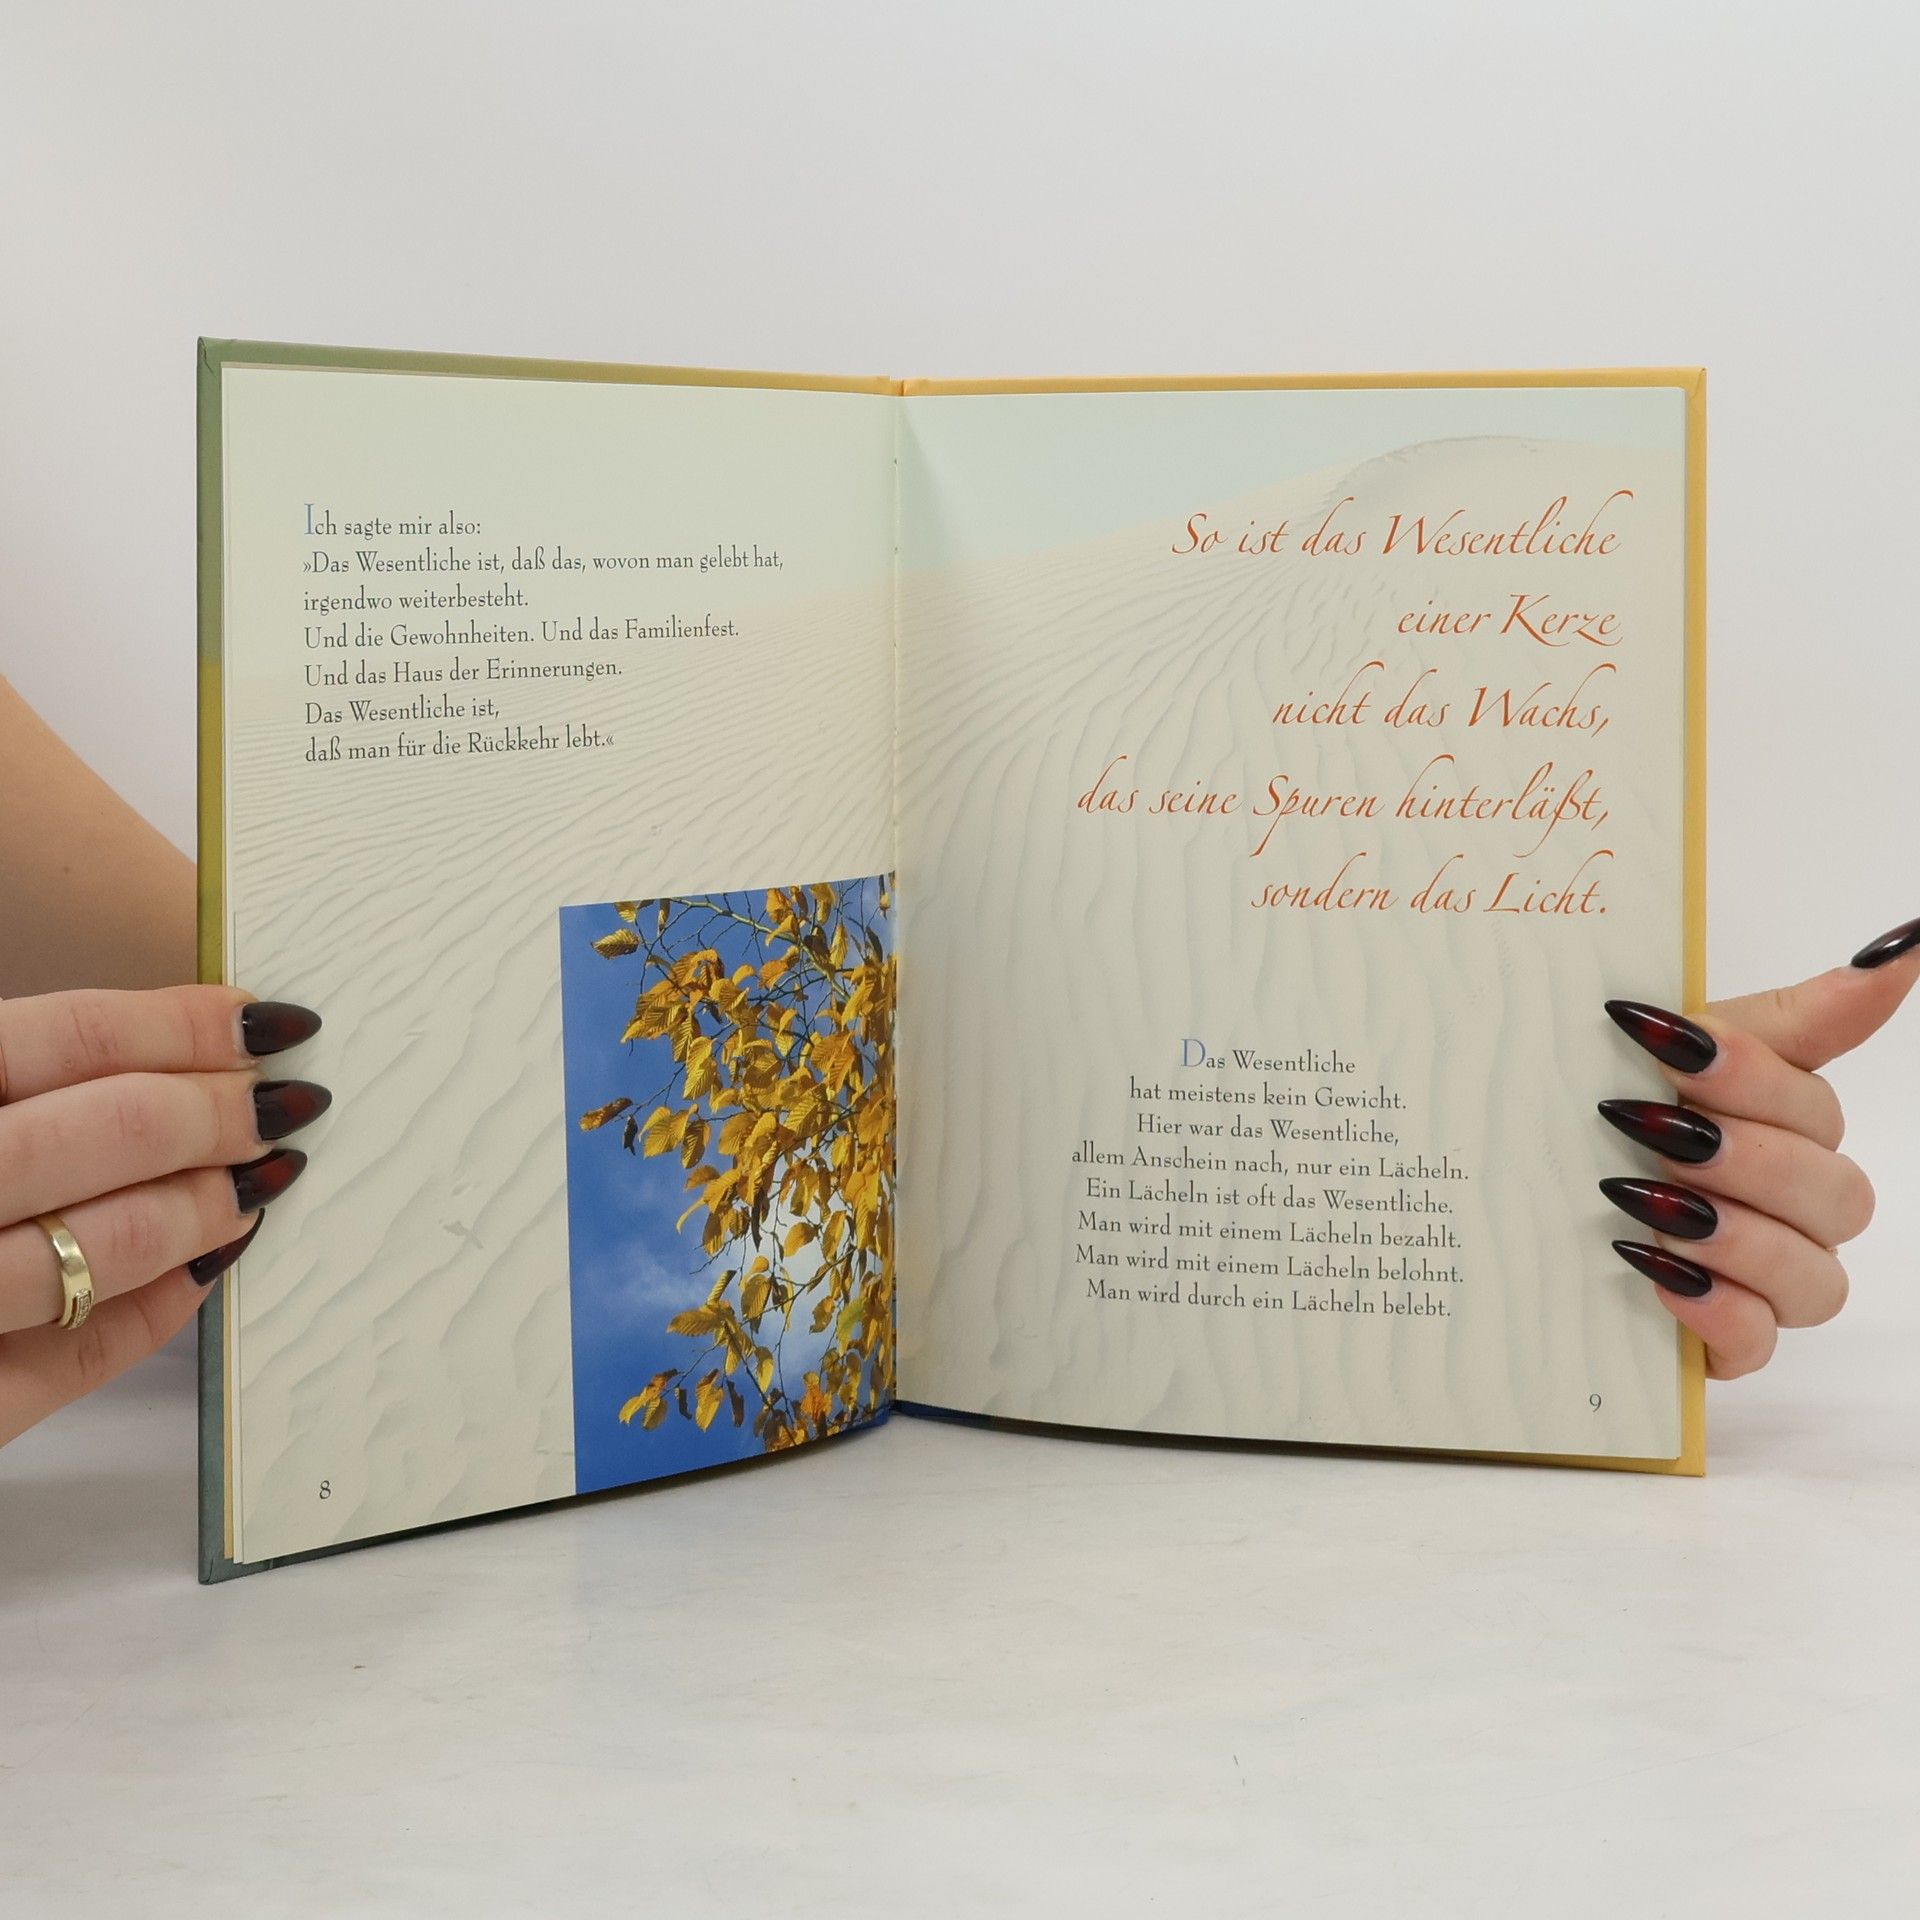 Ich sagte mir also:
»Das Wesentliche ist, daß das, wovon man gelebt hat,
irgendwo weiterbesteht.
Und die Gewohnheiten. Und das Familienfest.
Und das Haus der Erinnerungen.
Das Wesentliche ist,
daß man für die Rückkehr lebt.«
8
So ist das Wesentliche
einer Kerze
nicht das Wachs,
das seine Spuren hinterläßt,
sondern das Licht.
Das Wesentliche
hat meistens kein Gewicht.
Hier war das Wesentliche,
allem Anschein nach, nur ein Lächeln.
Ein Lächeln ist oft das Wesentliche.
Man wird mit einem Lächeln bezahlt.
Man wird mit einem Lächeln belohnt.
Man wird durch ein Lächeln belebt.
9